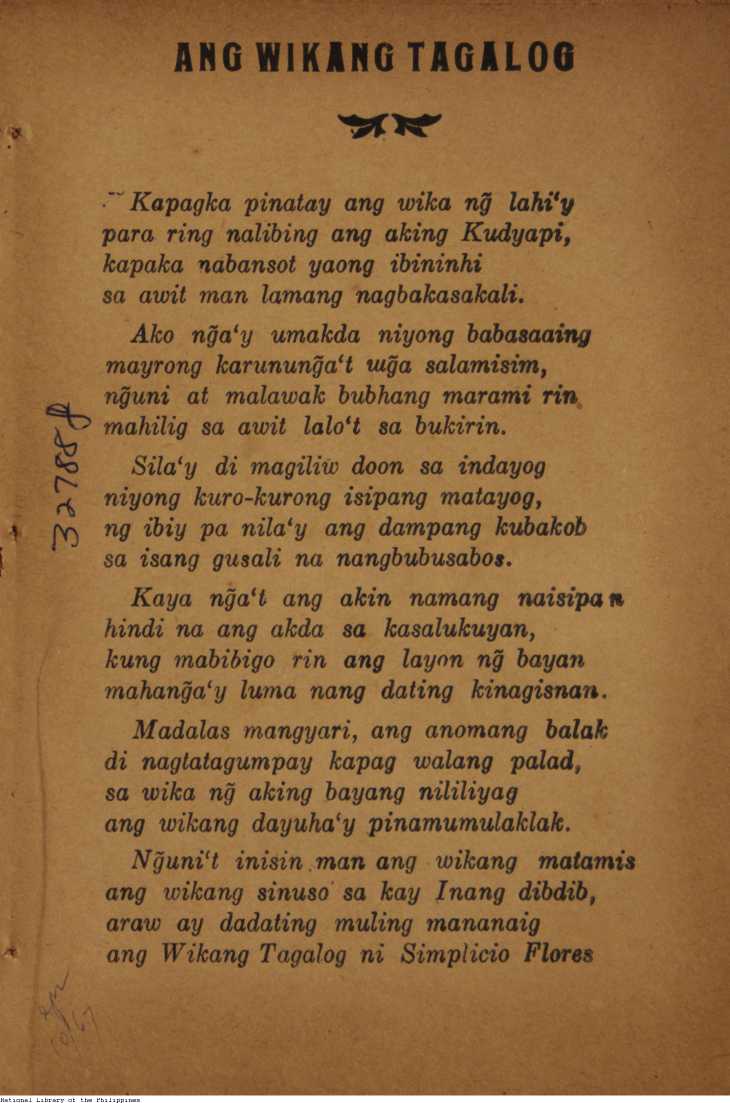 ANG WIKANG TAGALOG
Kapagka pinatay ang wika ng̃ lahi‘y
para ring nalibing ang aking Kudyapi,
kapaka nabansot yaong ibininhi
sa awit man lamang nagbakasakali.
Ako ng̃a‘y umakda niyong babasaaing
mayrong karunung̃a‘t mg̃a salamisim,
ng̃uni at malawak bubhang marami rin
mahilig sa awit lalo‘t sa bukirin.
Sila‘y di magiliw doon sa indayog
niyong kuro-kurong isipang matayog,
ng ibiy pa nila‘y ang dampang kubakob
sa isang gusali na nangbubusabos.
Kaya ng̃a‘t ang akin namang naisipan
hindi na ang akda sa kasalukuyan,
kung mabibigo rin ang layon ng̃ bayan
mahang̃a‘y luma nang dating kinagisnan.
Madalas mangyari, ang anomang balak
di nagtatagumpay kapag walang palad,
sa wika ng̃ aking bayang nililiyag
ang wikang dayuha‘y pinamumulaklak.
Ng̃uni‘t inisin man ang wikang matamis
ang wikang sinuso sa kay Inang dibdib,
araw ay dadating muling mananaig
ang Wikang Tagalog ni Simplicio Flores
32788
National Library of the Philippines